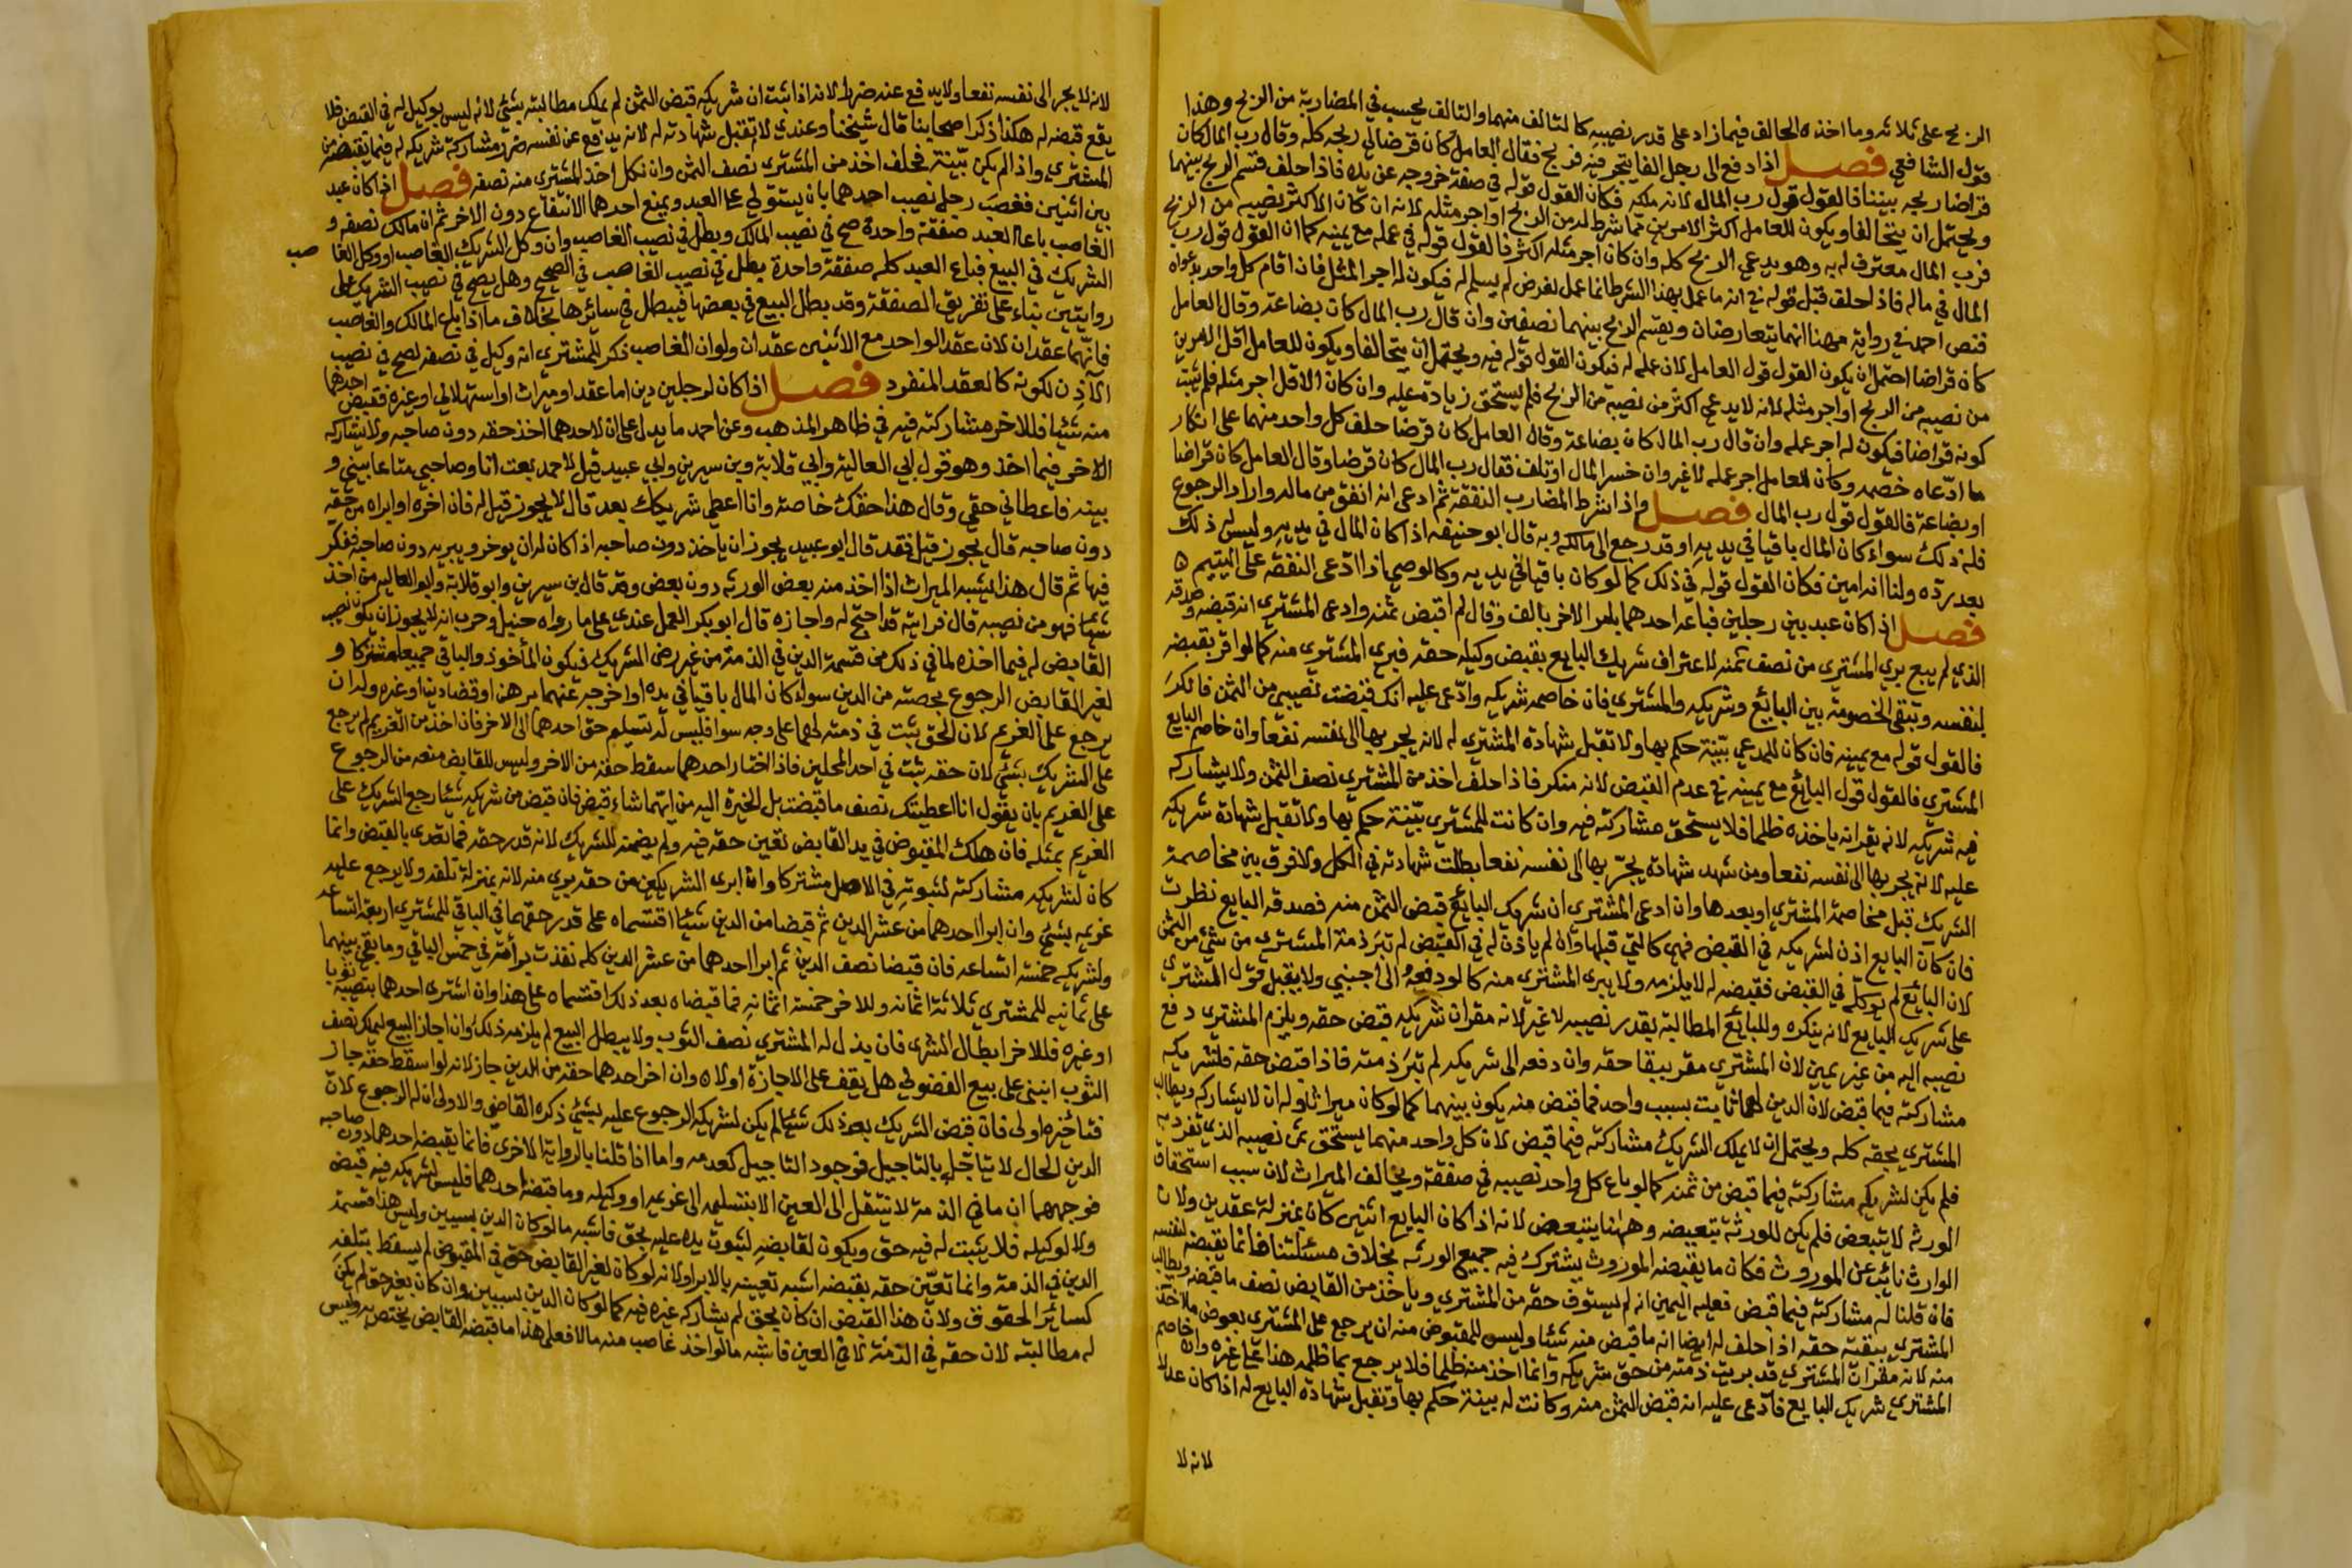 الربح على ثلاثة وما اخذه الحالف فيما زاد على قدر نصيبه كالتالف منهما والتالف يحسب في المضاربة من الربح وهذا
قول الشافعي فصل اذا دفع الى رجل الفا يتجر فيه فربح فقال العامل كان قرضا لي ربحه كله وقال رب المال كان
قراضا ربحه بيننا فالقول قول رب المال لانه ملكه فكان القول قوله في صفة خروجه عن يده فاذا حلف قسم الربح بينهما
ويحتمل ان يتحالفا ويكون للعامل اكثر الامرين مما شرط له من الربح او اجر مثله لانه ان كان الاكثر نصيبه من الربح
فرب المال معترف له به وهو يدعي الربح كله وان كان اجر مثله اكثر فالقول قوله في عمله مع يمينه كما ان القول قول رب
المال في ماله فاذا حلف قبل قوله في انه ما عمل بهذا الشرط انما عمل لغرض لم يسلم له فيكون له اجر المثل فان اقام كل واحد بدعواه
فنص احمد في رواية مهنا انهما يتعارضان ويقسم الربح بينهما نصفين وان قال رب المال كان بضاعة وقال العامل
كان قراضا احتمل ان يكون القول قول العامل لان عمله له فيكون القول قوله فيه ويحتمل ان يتحالفا ويكون للعامل اقل الامرين
من نصيبه من الربح او اجر مثله لانه لا يدعي اكثر من نصيبه من الربح فلم يستحق زيادة عليه وان كان الاقل اجر مثله فلم يثبت
كونه قراضا فيكون له اجر عمله وان قال رب المال كان بضاعة وقال العامل كان قرضا حلف كل واحد منهما على انكار
ما ادعاه خصمه وكان للعامل اجر عمله لا غير وان خسر المال او تلف فقال رب المال كان قرضا وقال العامل كان قراضا
او بضاعة فالقول قول رب المال فصل واذا شرط المضارب النفقة ثم ادعى انه انفق من ماله واراد الرجوع
فله ذلك سواء كان المال باقيا في يديه او قد رجع الى مالكه وبه قال ابو حنيفة اذا كان المال في يديه وليس له ذلك
بعد رده ولنا انه امين فكان القول قوله في ذلك كما لو كان باقيا في يديه وكالوصي اذا ادعى النفقة على اليتيم
فصل اذا كان عبد بين رجلين فباعه احدهما بامر الاخر بالف وقال لم اقبض ثمنه وادعى المشتري انه قبضه وصدقه
الذي لم يبع بري المشتري من نصف ثمنه لاعتراف شريك البايع بقبض وكيله حقه فبري المشتري منه كما لو اقر بقبضه
لنفسه وتبقى الخصومة بين البايع وشريكه والمشتري فان خاصمه شريكه وادعى عليه انك قبضت نصيبي من الثمن فانكر
فالقول قوله مع يمينه فان كان للمدعي بينة حكم بها ولا تقبل شهادة المشتري له لانه يجر بها الى نفسه نفعا وان خاصم البايع
المشتري فالقول قول البايع مع يمينه في عدم القبض لانه منكر فاذا حلف اخذ من المشتري نصف الثمن ولا يشاركه
فيه شريكه لانه يقر انه ياخذه ظلما فلا يستحق مشاركته فيه وان كانت للمشتري بينة حكم بها ولا تقبل شهادة شريكه
عليه لانه يجر بها الى نفسه نفعا ومن شهد شهادة يجر بها الى نفسه نفعا بطلت شهادته في الكل ولا فرق بين مخاصمة
الشريك قبل مخاصمة المشتري او بعدها وان ادعى المشتري ان شريك البايع قبض الثمن منه فصدقه البايع نظرت
فان كان البايع اذن لشريكه في القبض فهي كالتي قبلها وان لم ياذن له في القبض لم تبر ذمة المشتري من شيء من الثمن
لان البايع لم يوكله في القبض فقبضه له لا يلزمه ولا يبري المشتري منه كما لو دفعه الى اجنبي ولا يقبل قول المشتري
على شريك البايع لانه ينكره وللبايع المطالبة بقدر نصيبه لا غير لانه مقر ان شريكه قبض حقه ويلزم المشتري دفع
نصيبه اليه من غير يمين لان المشتري مقر ببقا حقه وان دفعه الى شريكه لم تبر ذمته فاذا قبض حقه فلشريكه
مشاركته فيما قبض لان الدين لهما ثابت بسبب واحد فما قبض منه يكون بينهما كما لو كان ميراثا وله ان لا يشاركه ويطالب
المشتري بحقه كله ويحتمل ان لا يملك الشريك مشاركته فيما قبض لان كل واحد منهما يستحق ثمن نصيبه الذي تفرد به
فلم يكن لشريكه مشاركته فيما قبض من ثمنه كما لو باع كل واحد نصيبه في صفقة ويخالف الميراث لان سبب استحقاق
الورثه لا يتبعض فلم يكن للورثة تبعيضه وههنا يتبعض لانه اذا كان البايع اثنين كان بمنزلة عقدين ولان
الوارث نائب عن الموروث فكان ما يقبضه للموروث يشترك فيه جميع الورثه بخلاف مسئلتنا فانما يقبضه لنفسه
فان قلنا له مشاركته فيما قبض فعليه اليمين انه لم يستوف حقه من المشتري وياخذ من القابض نصف ما قبضه ويطالب
المشتري ببقية حقه اذا حلف له ايضا انه ما قبض منه شيئا وليس للمقبوض منه ان يرجع على المشتري بعوض ما اخذ
منه لانه مقر ان المشتري قد بريت ذمته من حق شريكه وانما اخذ منه ظلما فلا يرجع بما ظلمه هذا على غيره وان خاصم
المشتري شريك البايع فادعى عليه انه قبض الثمن منه وكانت له بينة حكم بها وتقبل شهادة البايع له اذا كان عدلا
لانه لا
لانه لا يجر الى نفسه نفعا ولا يدفع عنه ضررا لانه اذا ثبت ان شريكه قبض الثمن لم يملك مطالبته بشيء لانه ليس بوكيل له في القبض فلا
يقع قبضه له هكذا ذكر اصحابنا قال شيخنا وعندي لا تقبل شهادته له لانه يدفع عن نفسه ضرر مشاركة شريكه له فيما يقبضه من
المشتري واذا لم يكن بينة فحلف اخذ من المشتري نصف الثمن وان نكل اخذ المشتري منه نصفه فصل اذا كان عبد
بين اثنين فغصب رجل نصيب احدهما بان يستولي على العبد ويمنع احدهما الانتفاع دون الاخر ثم ان مالك نصفه و
الغاصب باعا العبد صفقة واحدة صح في نصيب المالك وبطل في نصيب الغاصب وان وكل الشريك الغاصب او وكل الغا صب
الشريك في البيع فباع العبد كله صفقة واحدة بطل في نصيب الغاصب في الصحيح وهل يصح في نصيب الشريك على
روايتين بناء على تفريق الصفقة وقد بطل البيع في بعضها فيبطل في سائرها بخلاف ما اذا باع المالك والغاصب
فانهما عقدان لان عقد الواحد مع الاثنين عقدان ولو ان الغاصب ذكر للمشتري انه وكيل في نصفه لصح في نصيب
الاذن لكونه كالعقد المنفرد فصل اذا كان لرجلين دين اما عقد او ميراث او استهلاك او غيره فقبض احدهما
منه شيئا فللاخر مشاركته فيه في ظاهر المذهب وعن احمد ما يدل على ان لاحدهما اخذ حقه دون صاحبه ولا يشاركه
الاخر فيما اخذ وهو قول ابي العالية وابي قلابة وبن سيرين وابي عبيد قيل لاحمد بعت انا وصاحبي متاعا بيني و
بينه فاعطاني حقي وقال هذا حقك خاصة وانا اعطي شريكك بعد قال لا يجوز قيل له فان اخره او ابراه من حقه
دون صاحبه قال يجوز قيل فقد قال ابو عبيد يجوز ان ياخذ دون صاحبه اذا كان له ان يوخر ويبريه دون صاحبه ففكر
فيها ثم قال هذا يشبه الميراث اذا اخذ منه بعض الورثه دون بعض وقد قال بن سيرين وابو قلابة وابو العالية من اخذ
شيئا فهو من نصيبه قال فرايته قد احتج له واجازه قال ابو بكر العمل عندي على ما رواه حنبل وحرب انه لا يجوز ان يكون نصيب
القابض له فيما اخذه لما في ذلك من قسمة الدين في الذمة من غير رضى الشريك فيكون الماخوذ والباقي جميعا مشتركا و
لغير القابض الرجوع بحصته من الدين سواء كان المال باقيا في يده او اخرجه عنهما برهن او قضا دين او غيره وله ان
يرجع على الغريم لان الحق يثبت في ذمته لهما على وجه سوا فليس له تسليم حق احدهما الى الاخر فان اخذ من الغريم لم يرجع
على الشريك بشيء لان حقه يثبت في احد المحلين فاذا اختار احدهما سقط حقه من الاخر وليس للقابض منعه من الرجوع
على الغريم بان يقول انا اعطيتك نصف ما قبضت بل الخيرة اليه من ايهما شاء قبض فان قبض من شريكه شيئا رجع الشريك على
الغريم بمثله فان هلك المقبوض في يد القابض تعين حقه فيه ولم يضمنه للشريك لانه قدر حقه فما تعدى بالقبض وانما
كان لشريكه مشاركته لثبوته في الاصل مشتركا وان ابرى الشريكين من حقه بري منه لانه بمنزلة تلفه ولا يرجع عليه
غريمه بشيء وان ابرا احدهما من عشر الدين ثم قبضا من الدين شيئا اقتسماه على قدر حقهما في الباقي للمشتري اربعة اتساعه
ولشريكه خمسة اتساعه فان قبضا نصف الدين ثم ابرا احدهما من عشر الدين كله نفذت براءته في خمس الباقي وما بقي بينهما
على ثمانية للمشتري ثلاثة اثمانه وللاخر خمسة اثمانه فما قبضاه بعد ذلك اقتسماه على هذا وان اشترى احدهما بنصيبه ثوبا
او غيره فللاخر ابطال الشرى فان بذل له المشتري نصف الثوب ولا يبطل البيع لم يلزمه ذلك وان اجاز البيع ليملك نصف
الثوب انبنى على بيع الفضولي هل يقف على الاجازة او لا وان اخر احدهما حقه من الدين جاز لانه لو اسقط حقه جاز
فتاخيره اولى فان قبض الشريك بعد ذلك شيئا لم يكن لشريكه الرجوع عليه بشيء ذكره القاضي والاولى ان له الرجوع لان
الدين الحال لا يتاجل بالتاجيل فوجود التاجيل كعدمه واما اذا قلنا بالرواية الاخرى فانما يقبضه احدهما دون صاحبه
فوجهها ان ما في الذمة لا ينتقل الى العين الا بتسليمه الى غريمه او وكيله وما قبضه احدهما فليس لشريكه فيه قبض
ولا لوكيله فلا يثبت له فيه حق ويكون لقابضه لثبوت يده عليه بحق فاشبه ما لو كان الدين بسببين وليس هذا قسمة
الدين في الذمة وانما تعين حقه بقبضه اشبه تعيينه بالابرا ولانه لو كان لغير القابض حق في المقبوض لم يسقط بتلفه
كسائر الحقوق ولان هذا القبض ان كان بحق لم يشاركه غيره فيه كما لو كان الدين بسببين وان كان بغير حق لم يكن
له مطالبته لان حقه في الذمة لا في العين فاشبه ما لو اخذ غاصب منه مالا فعلى هذا ما قبضه القابض يختص به وليس